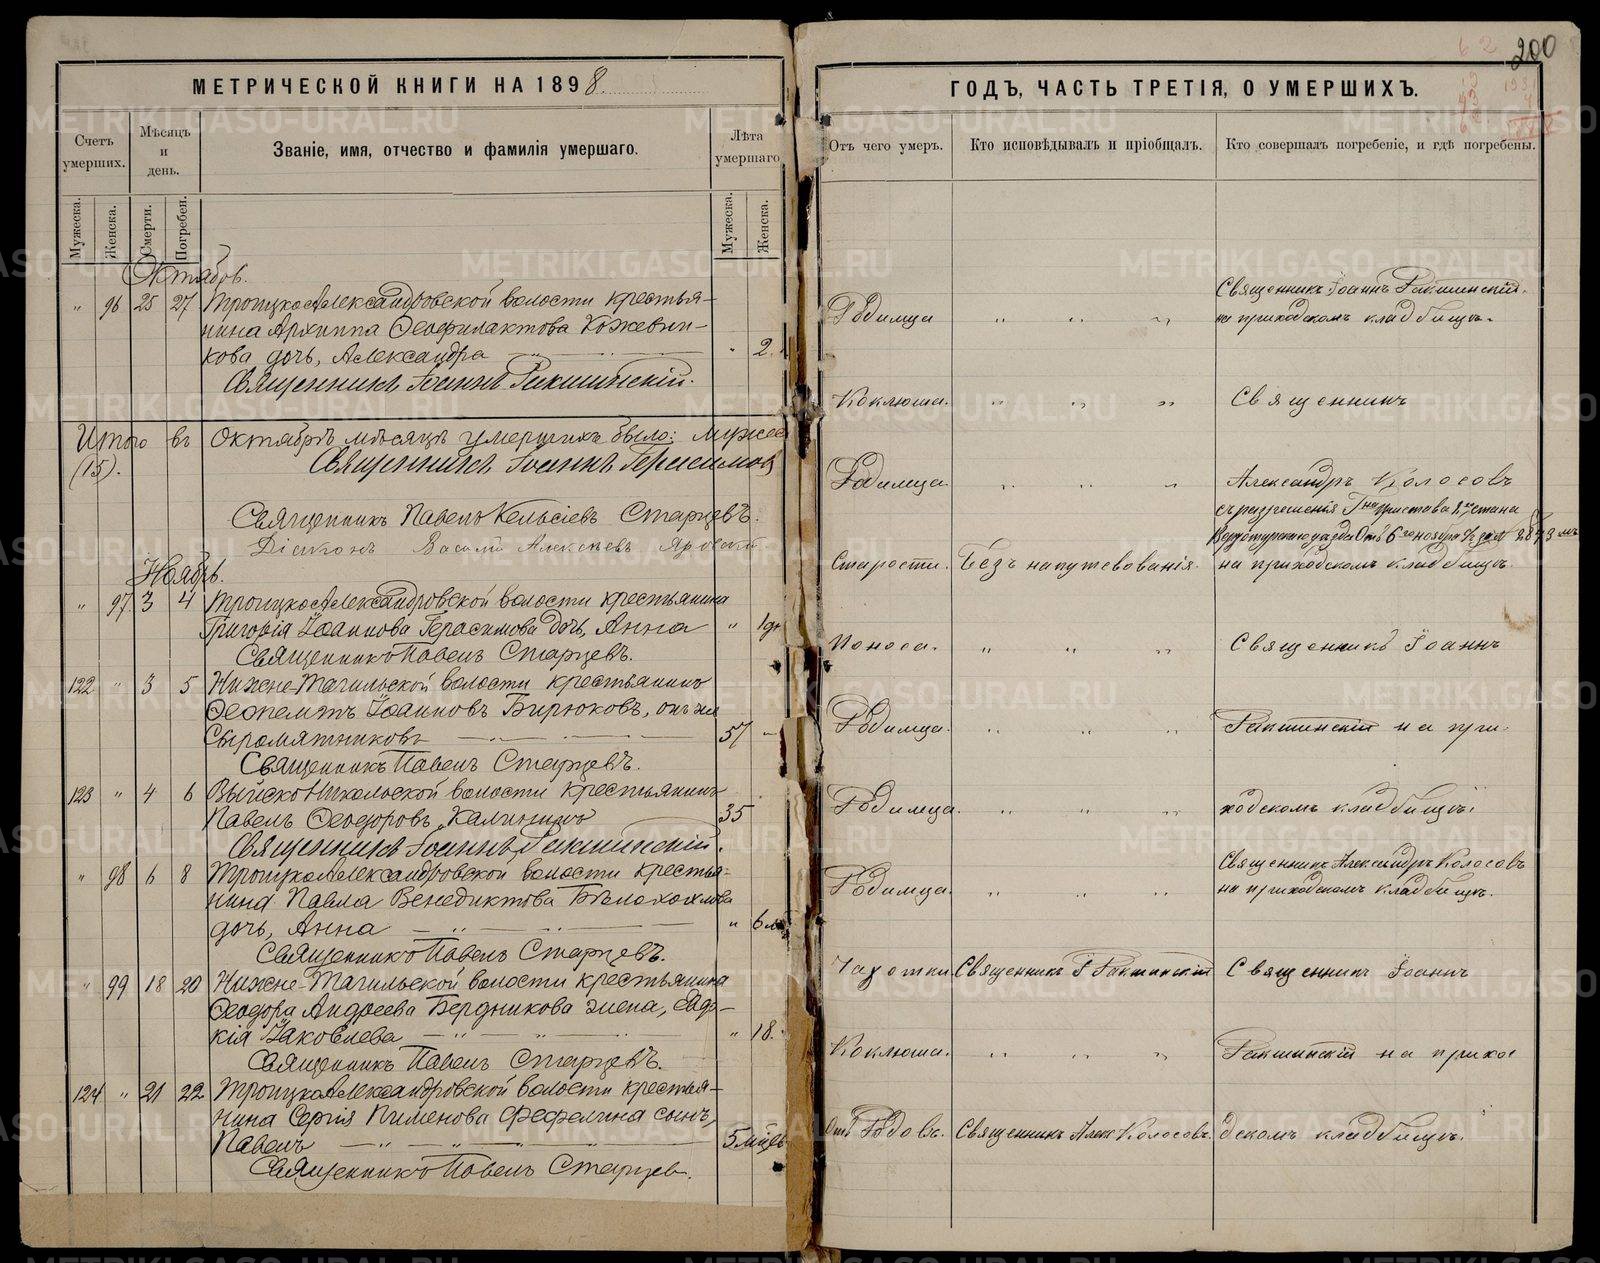 МЕТРИЧЕСКОЙ КНИГИ НА 1898
Счетъ умерших.
Мѣсяцъ и день.
Званіе, имя, отчество и фамилія умершаго.
Лѣта умершаго
Мужеска.
Женска.
Смерти.
Погребен.
Мужеска.
Женска.
Октябрь.
" 96 25 27 Троицко-Александровской волости крестья-
нина Архиппа Ѳеофилактова Кожевни-
кова дочь, Александра " 2.
Священникъ Іоаннъ Ракшинскій.
Итого въ Октябрѣ мѣсяцѣ умершихъ было: мужес
(15). Священникъ Іоаннъ Герасимовъ
Священникъ Павелъ Кельсіевъ Старцевъ.
Діаконъ Василій Алексѣевъ
Ноябрь.
" 97 3 4 Троицко-Александровской волости крестьянина
Григорія Іоаннова Герасимова дочь, Анна " 1
Священникъ Павелъ Старцевъ.
122 " 3 5 Нижне-Тагильской волости крестьянинъ
Іоанновъ Бирюковъ, онъ же
Сыромятниковъ 57 "
Священникъ Павелъ Старцевъ.
123 " 4 6 Выйско-Никольской волости крестьянинъ
Павелъ Ѳеодоровъ Калининъ 35
Священникъ Іоаннъ Ракшинскій.
" 98 6 8 Троицко-Александровской волости крестья-
нина Павла Венедиктова Бѣлохохлова
дочь, Анна " 6
Священникъ Павелъ Старцевъ.
" 99 18 20 Нижне-Тагильской волости крестьянина
Ѳеодора Андреева Бердникова жена, Евдо-
кія Іаковлева " 18.
Священникъ Павелъ Старцевъ.
124 " 21 22 Троицко-Александровской волости крестья-
нина Сергія Пименова Фефелина сынъ,
Павелъ 5 мцевъ
Священникъ Павелъ Старцев.
200
ГОДЪ, ЧАСТЬ ТРЕТІЯ, О УМЕРШИХЪ.
Отъ чего умеръ.
Кто исповѣдывалъ и пріобщалъ.
Кто совершалъ погребеніе, и гдѣ погребены.
Священникъ Іоаннъ Ракшинскій.
Родимца " " " на приходскомъ кладбищѣ.
Коклюша. " " " Священникъ
Родимца " " " Александръ Колосовъ
съ разрешенія Г на Пристава 2 го стана
Верхотурскаго уѣзда Отъ 6 го ноября за № 2843 мъ
Старости. Безъ напутевованія. на приходскомъ кладбищѣ.
Поноса. " " " Священникъ Іоаннъ
Родимца. " " " Ракшинскій на при-
Родимца. " " " ходскомъ кладбищѣ.
Священникъ Александръ Колосовъ
Родимца. " " " на приходскомъ кладбищѣ.
Чахотки Священникъ І Ракшинскій Священникъ Іоаннъ
Коклюша. " " " Ракшинскій на прихо
Отъ Родовъ. Священникъ Алекс Колосовъ. дскомъ кладбищѣ.
METRIKI.GASO-URAL.RU